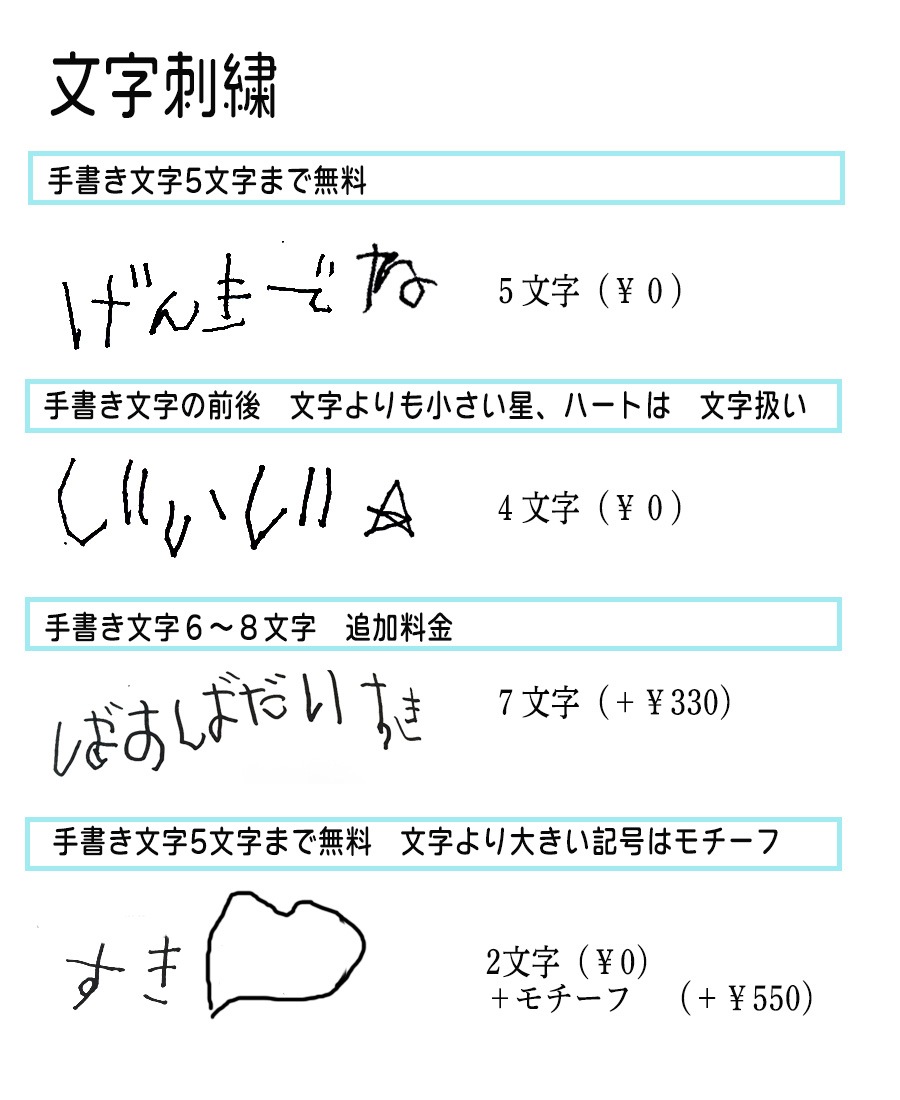 文字刺繍
手書き文字5文字まで無料
げんきでね
5文字（￥0）
手書き文字の前後　文字よりも小さい星、ハートは　文字扱い
じいじ☆
4文字（￥0）
手書き文字６～８文字　追加料金
ばあばだいすき
7文字（+￥330）
手書き文字5文字まで無料　文字より大きい記号はモチーフ
すき
2文字（￥0）
＋モチーフ　（+￥550）